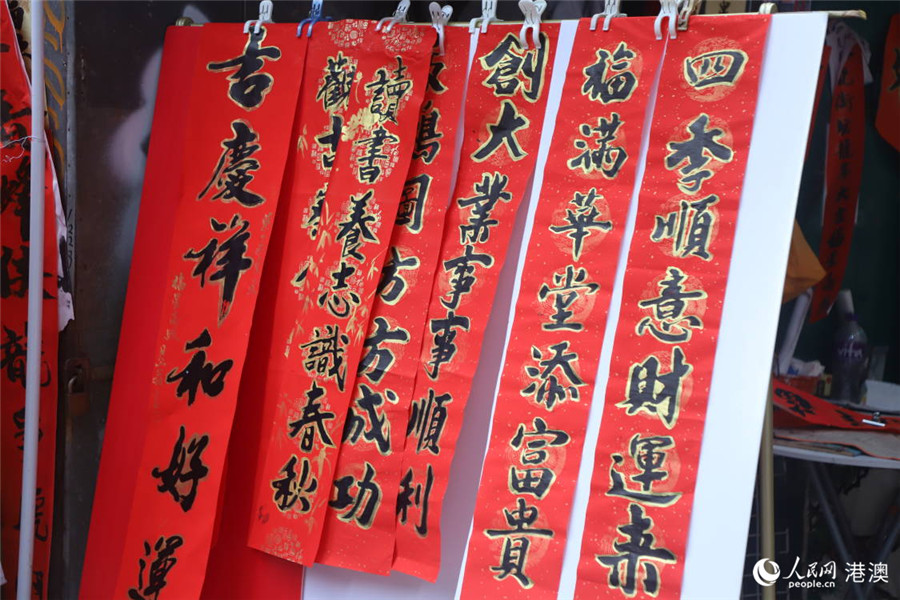 四季順意財運来
福滿華堂添富貴
創大業事事順利
鴻圖方方成功
讀書養志識春秋
觀古
吉慶祥和好運
人民网 港澳
people.cn